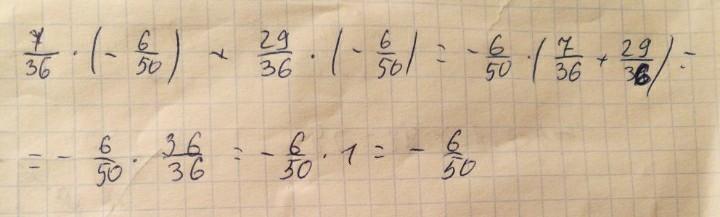 7/36 · (- 6/50) + 29/36 · (- 6/50) = - 6/50 · (7/36 + 29/36) =
= - 6/50 · 36/36 = - 6/50 · 1 = - 6/50